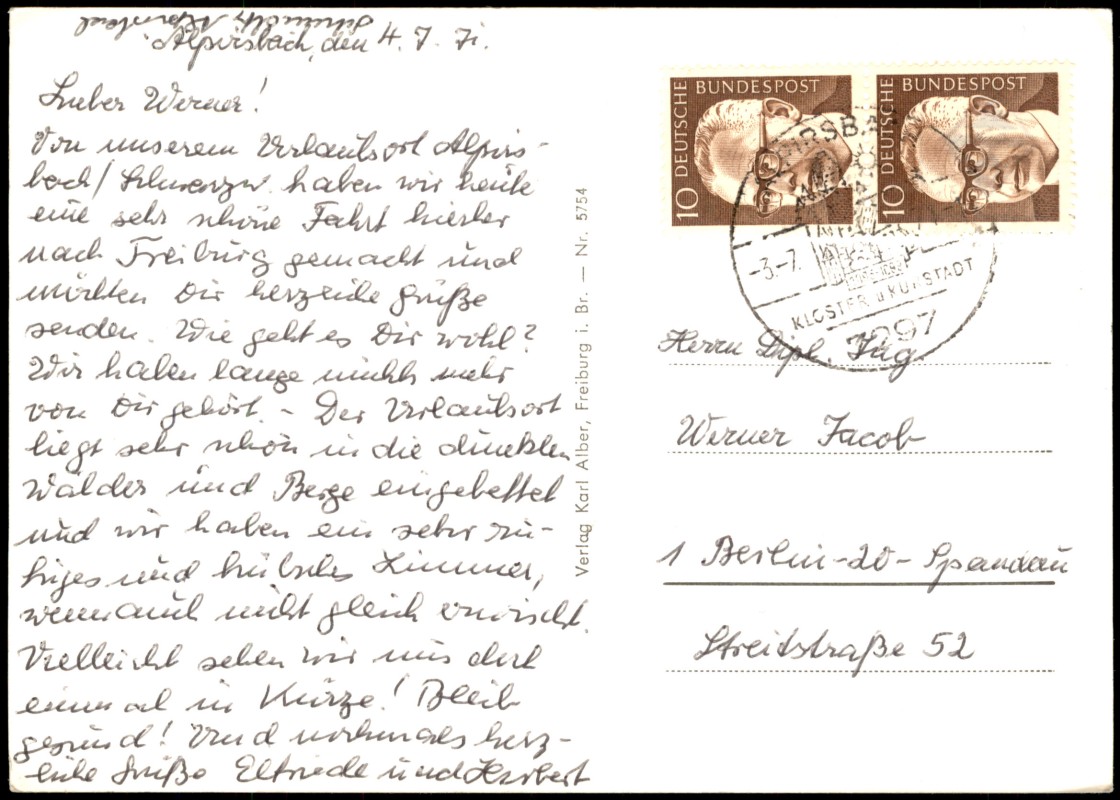 Alpirsbach, den 4. 7. 71.
Lieber Werner!
Von unserem Urlaubsort Alpirs-
bach/Schwarzw. haben wir heute
eine sehr schöne Fahrt hierher
nach Freiburg gemacht und
möchten Dir herzliche Grüße
senden. Wie geht es Dir wohl?
Wir haben lange nichts mehr
von Dir gehört. - Der Urlaubsort
liegt sehr schön in die dunklen
Wälder und Berge eingebettet
und wir haben ein sehr ru-
higes und hübsches Zimmer,
wenn auch nicht gleich erwischt.
Vielleicht sehen wir uns dort
einmal in Kürze! Bleib
gesund! Und nochmals herz-
liche Grüße Elfriede und Herbert
Verlag Karl Alber, Freiburg i. Br. — Nr. 5754
DEUTSCHE BUNDESPOST
10
DEUTSCHE BUNDESPOST
10
-3.-7.
KLOSTER U KURSTADT
7297
Herrn Dipl. Ing
Werner Jacob
1 Berlin-20-Spandau
Streitstraße 52